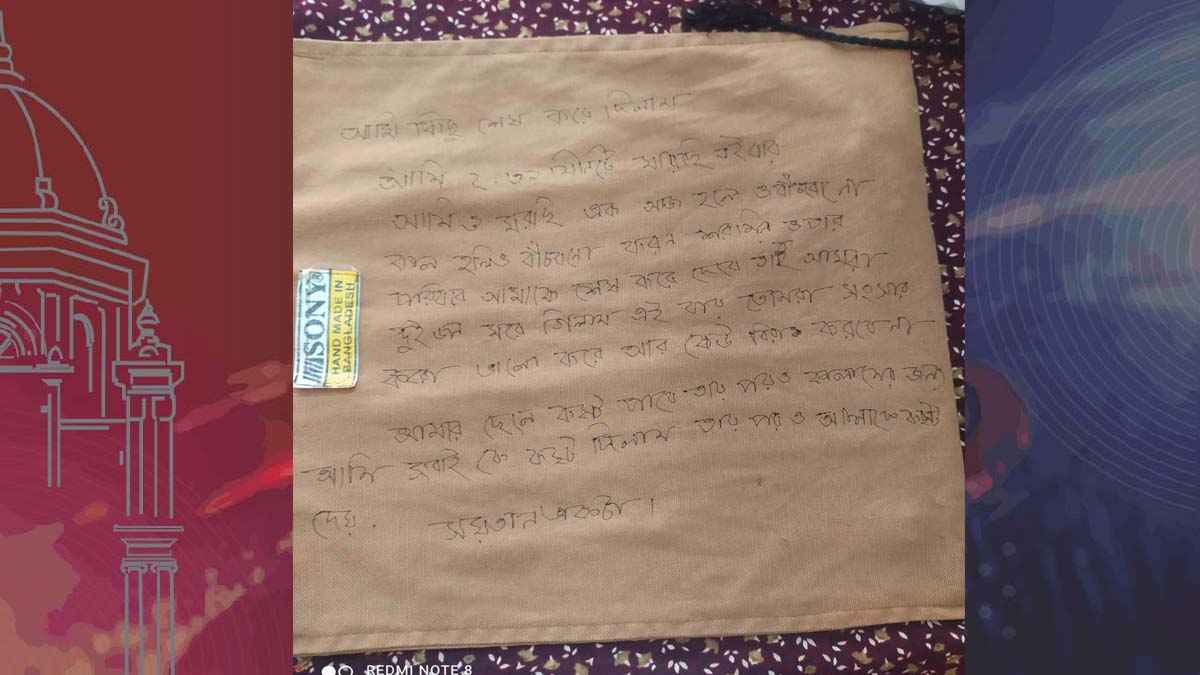 আমি কিছু শেষ করে দিলাম
আমি ২.৩০ মিনিটে মারছি বইবার
আমিও মরছি এক সঙ্গে হলে ও বাঁচবো না
বাঁচবনো কারন শারমিন ও তার
পরিবার আমাকে শেষ করে দেবে তাই আমরা
দুইজন মরে গিলাম এই বার তোমরা সংসার
করো ভালো করে আর কেউ বিরক্ত করবে না
আমার ছেলে কষ্ট পাবে তার পরও জন্য
আমি সবাই কে কষ্ট দিলাম তার পর ও আমাকে কষ্ট
দেয়. সয়তান একটা।
SONY®
HAND MADE IN
BANGLADESH
REDMI NOTE 8